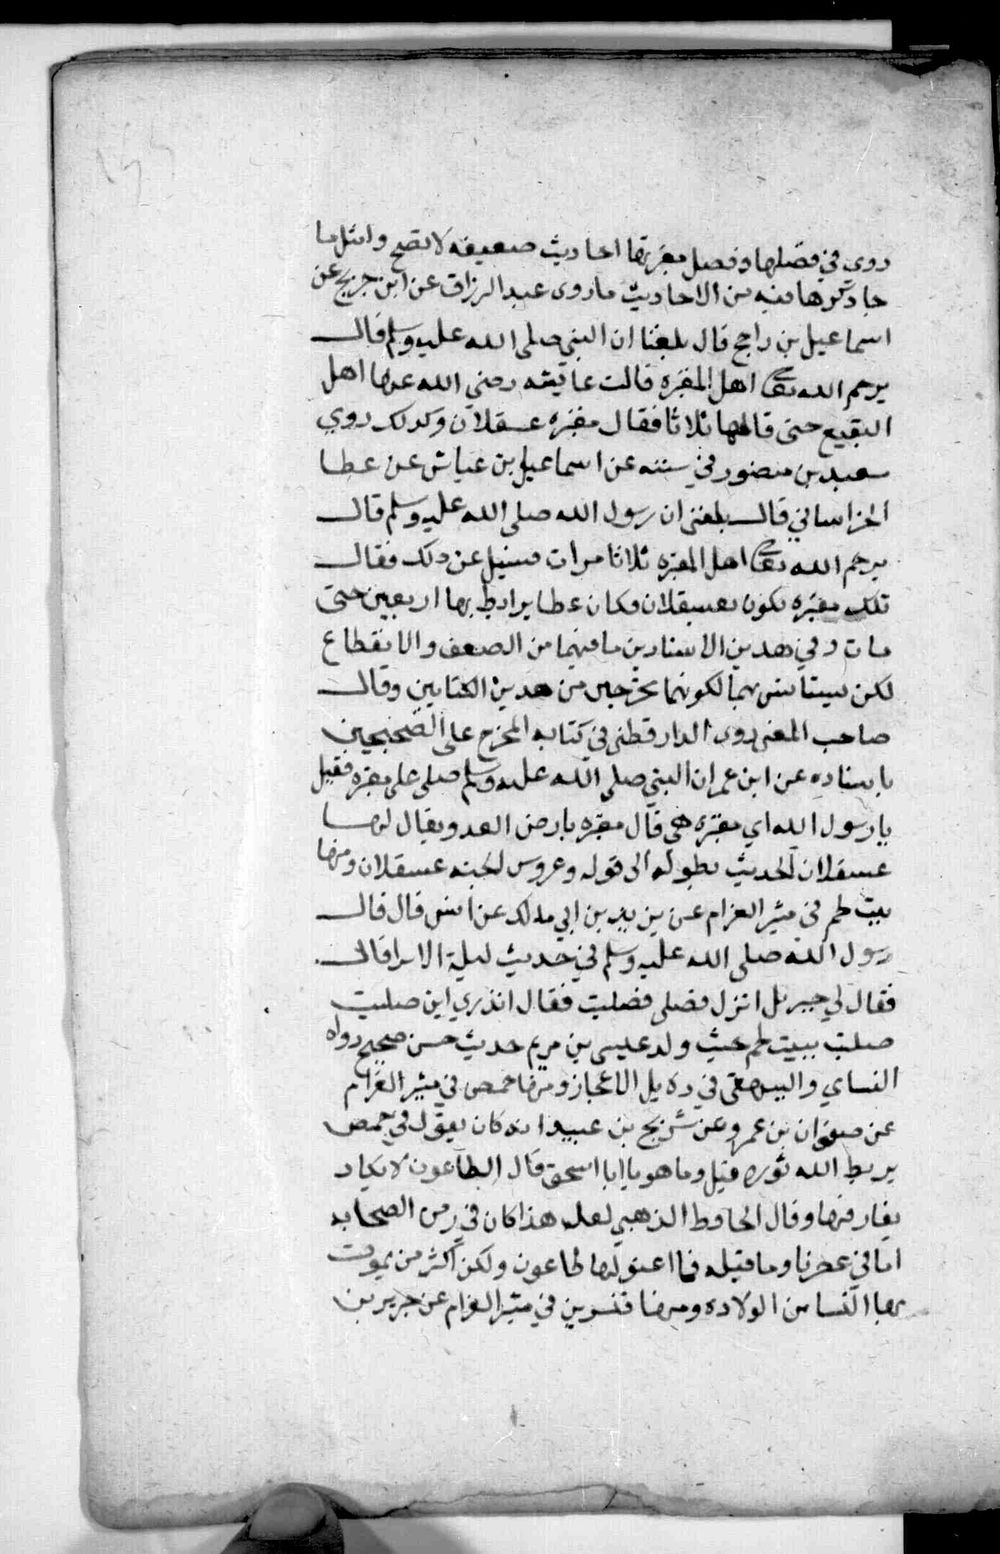 روي في فضلها وفضل مقبرتها احاديث ضعيفه لا تصح وامثل ما
جا ذكرها فيه من الاحاديث ما روى عبد الرزاق عن ابن جريج عن
اسماعيل بن راجح قال بلغنا ان النبي صلى الله عليه وسلم قال
يرحم الله تعالى اهل المقبره قالت عايشه رضي الله عنها اهل
البقيع حتى قالها ثلاثا فقال مقبره عسقلان وكذلك روي
سعيد بن منصور في سننه عن اسماعيل بن عياش عن عطا
الخراساني قال بلغني ان رسول الله صلى الله عليه وسلم قال
يرحم الله تعالى اهل المقبره ثلاثا مرات فسيل عن ذلك فقال
تلك مقبره تكون بعسقلان فكان عطا يرابط بها اربعين حتى
مات وفي هدين الاسنادين ما فيهما من الضعف والانقطاع
لكن يستانس بهما لكونهما مخرجين من هدين الكتابين وقال
صاحب المغني روى الدارقطني في كتابه المخرج على الصحيحين
باسناده عن ابن عمر ان النبي صلى الله عليه وسلم صلى على مقبره فقيل
يا رسول الله اي مقبره هي قال مقبره بارض العدو يقال لها
عسقلان الحديث بطوله الى قوله وعروس الجنه عسقلان ومنها
بيت لحم في مثير الغرام عن يزيد بن ابي مالك عن انس قال قال
رسول الله صلى الله عليه وسلم في حديث ليلة الاسرا قال
فقال لي جبريل انزل فصلى فصليت فقال اتدري اين صليت
صليت ببيت لحم حيث ولد عيسى بن مريم حديث حسن صحيح رواه
النساي والبيهقي في دلايل الاعجاز ومنها حمص في مثير الغرام
عن صفوان بن عمرو عن شريح بن عبيد انه كان يقول في حمص
يربط الله ثوره قيل وما هو يا ابا اسحق قال الطاعون لا يكاد
يفارقها وقال الحافظ الذهبي لعله هذا كان في زمن الصحابه
اما في عصرنا وما قبله فما اعنو لها طاعون ولكن اكثر من يموت
بها النسا من الولاده ومنها قنسرين في مثير الغرام عن جرير بن